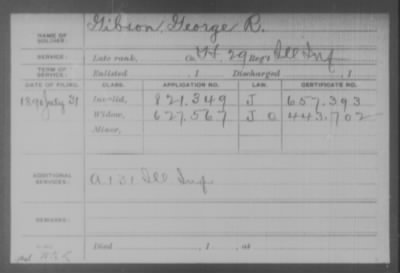 NAME OF SOLDIER: Gibson, George R.
SERVICE: Late rank, Co. H, 29 Reg't Ill Inf
TERM OF SERVICE: Enlisted , 1 Discharged , 1
DATE OF FILING. CLASS. APPLICATION NO. LAW. CERTIFICATE NO.
1890 July 31 Invalid, 821.349 J 657.393
Widow, 627.567 J O 443.702
Minor,
ADDITIONAL SERVICES: A 131 Ill. Inf.
REMARKS:
Died , 1 , at